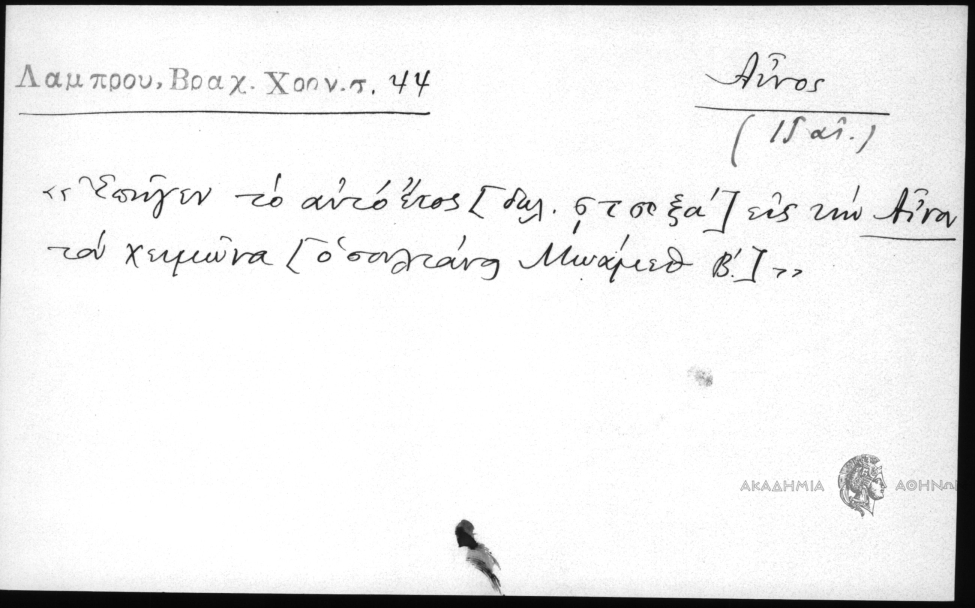 Λαμπρου, Βραχ. Χρον. σ. 44
Αἶνος
(15 αἰ.)
«Ἐπῆγεν τὸ αὐτὸ ἔτος [δηλ. ςτσοξα'] εἰς τὴν Αἶνον
τὸν χειμῶνα [ὁ σουλτάνος Μωάμεθ Β΄.]»
ΑΚΑΔΗΜΙΑ ΑΘΗΝΩΝ